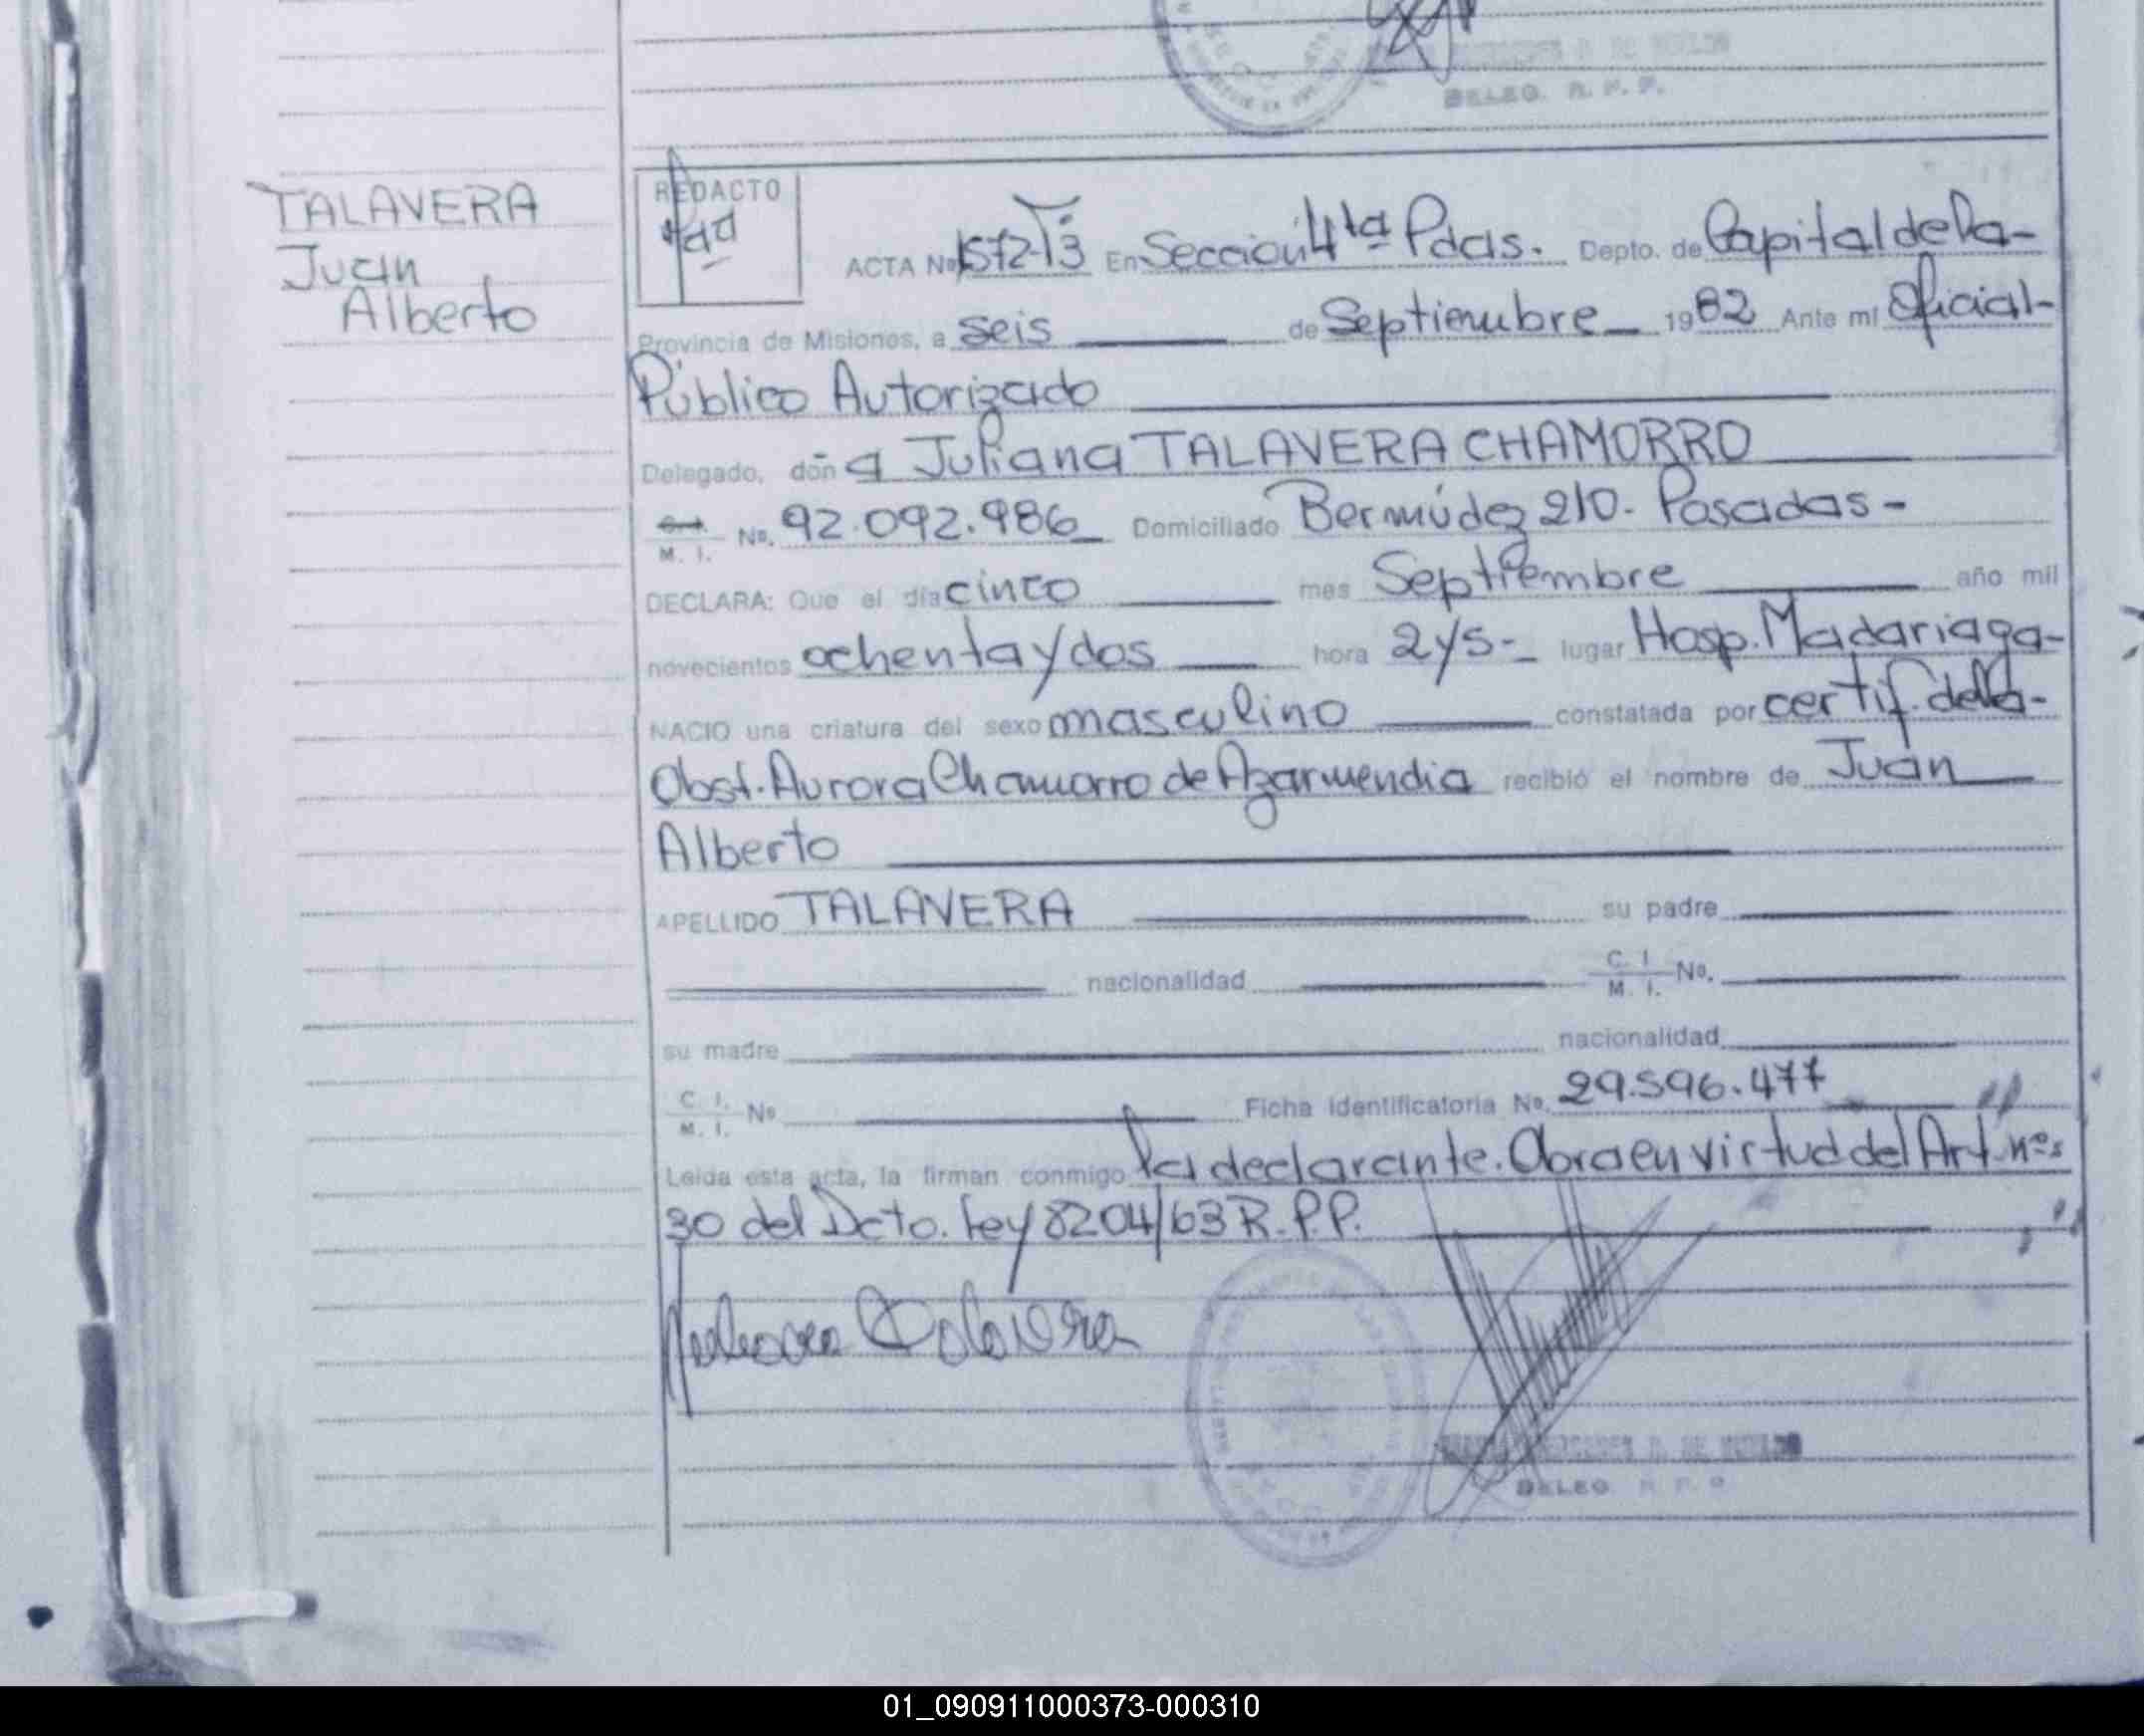 DELEG. R. P. P.
TALAVERA
Juan
Alberto
REDACTO
ACTA Nº 1572-Ti3 En Sección 4ta Pdas. Depto. de Capital de la-
Provincia de Misiones, a seis de Septiembre 1982 Ante mi Oficial-
Público Autorizado
Delegado, don a Juliana TALAVERA CHAMORRO
C. I. M. I. No. 92.092.986 Domiciliado Bermúdez 210. Posadas-
DECLARA: Que el día cinco mes Septiembre año mil
novecientos ochenta y dos hora 2y5- lugar Hosp. Madariaga-
NACIO una criatura del sexo masculino constatada por certif. de la-
Obst. Aurora Chamorro de Azarmendia recibió el nombre de Juan
Alberto
APELLIDO TALAVERA su padre
nacionalidad C. I. M. I. No.
su madre nacionalidad
C. I. M. I. No Ficha Identificatoria No. 29.596.477
Leida esta acta, la firman conmigo la declarante. Obra en virtud del Art. nºs
30 del Dcto. Ley 8204/63 R.P.P.
Juliana Talavera
DELEG. R. P. P.
01_090911000373-000310